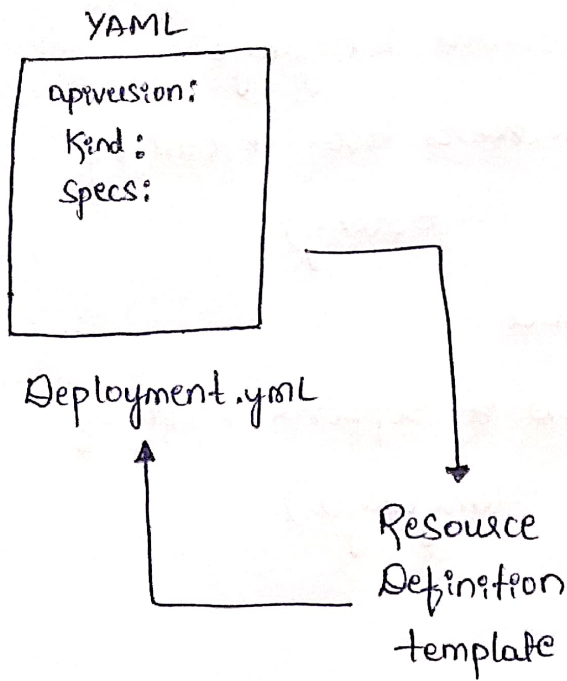 YAML
apiversion:
Kind:
Specs:
Deployment.yml
Resource
Definition
template